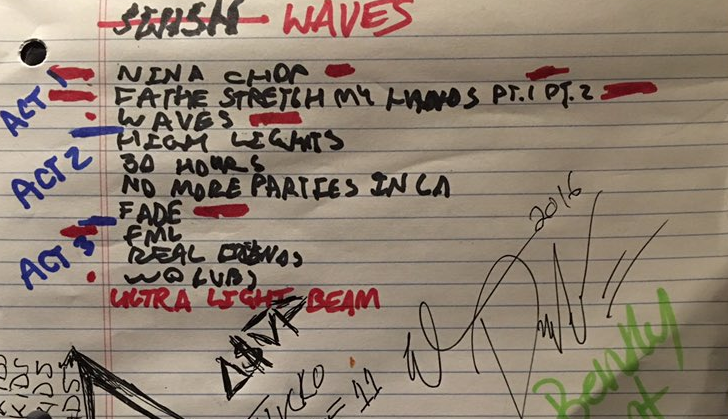 SWISH WAVES
NINA CHOP
FATHE STRETCH MY HANDS PT.1 PT.2
WAVES
HIGH LIGHTS
30 HOURS
NO MORE PARTIES IN LA
FADE
FML
REAL FRIENDS
WOLVES
ULTRA LIGHT BEAM
ACT 1
ACT 2
ACT 3
2016
= 11